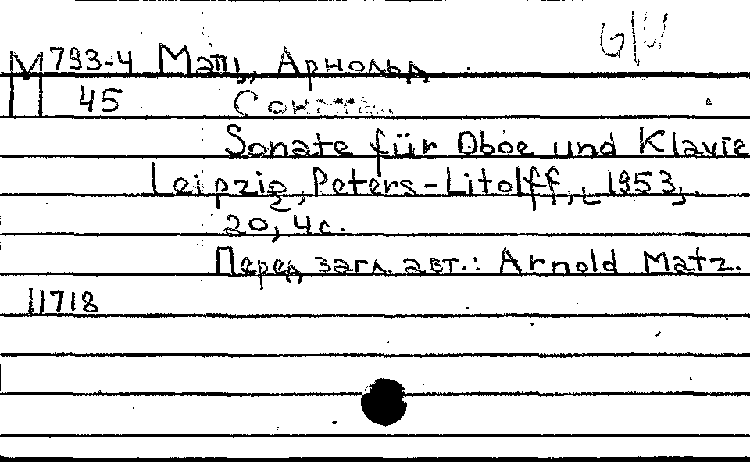 М 793-4 Матц, Арнольд.
45 Соната.
Sonate für Oboe und Klavie
Leipzig, Peters-Litolff, 1953,
20, 4 с.
Перед загл. авт.: Arnold Matz.
11718